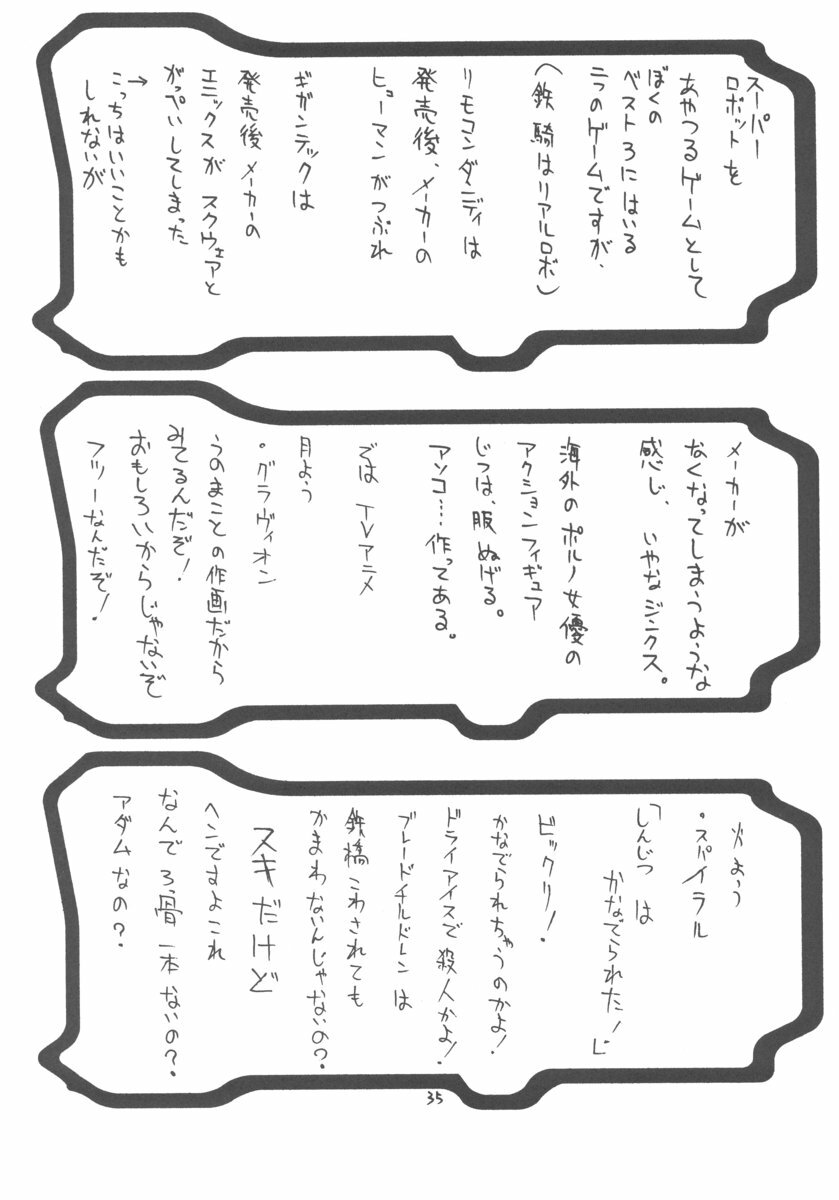 スーパー
ロボットを
あやつるゲームとして
ぼくの
ベスト3にはいる
二つのゲームですが、
(鉄騎はリアルロボ)
リモコンダンディは
発売後、メーカーの
ヒューマンがつぶれ
ギガンテックは
発売後メーカーの
エニックスが スクウェアと
がっぺいしてしまった
→こっちはいいことかも
しれないが
メーカーが
なくなってしまうような
感じ、 いやなジンクス。
海外のポルノ女優の
アクションフィギュア
じつは、服ぬげる。
アソコ…作ってある。
では TVアニメ
月よう
・グラヴィオン
うのまことの作画だから
みてるんだぞ!
おもしろいからじゃないぞ
フツーなんだぞ!
火よう
・スパイラル
「しんじつ は
かなでられた!」
ビックリ!
かなでられちゃうのかよ!
ドライアイスで殺人かよ!
ブレードチルドレン は
鉄橋こわされても
かまわないんじゃないの?
スキだけど
ヘンですよこれ
なんでろっ骨一本ないの?
アダムなの?
35